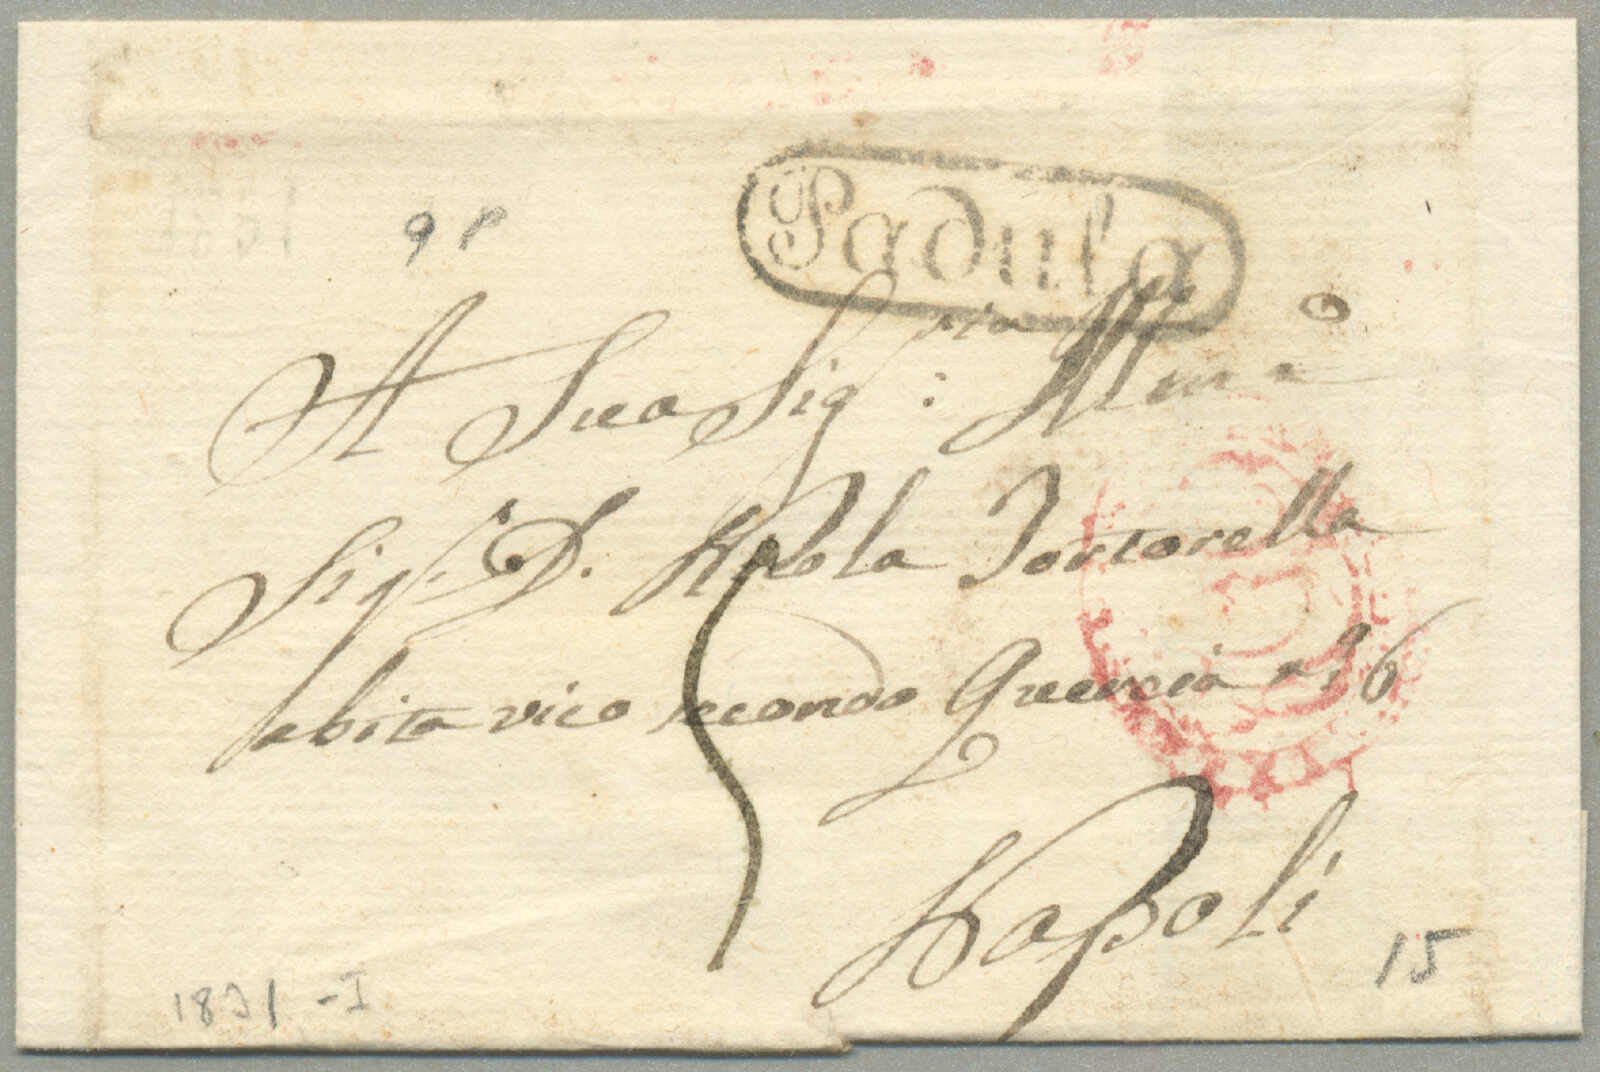 Padula
9
A Sua Sig.ria : Illma
Sig.r D. Nicola Tortorella
abita vico secondo Quercia n.º 6
5
Napoli
15
1831 - I